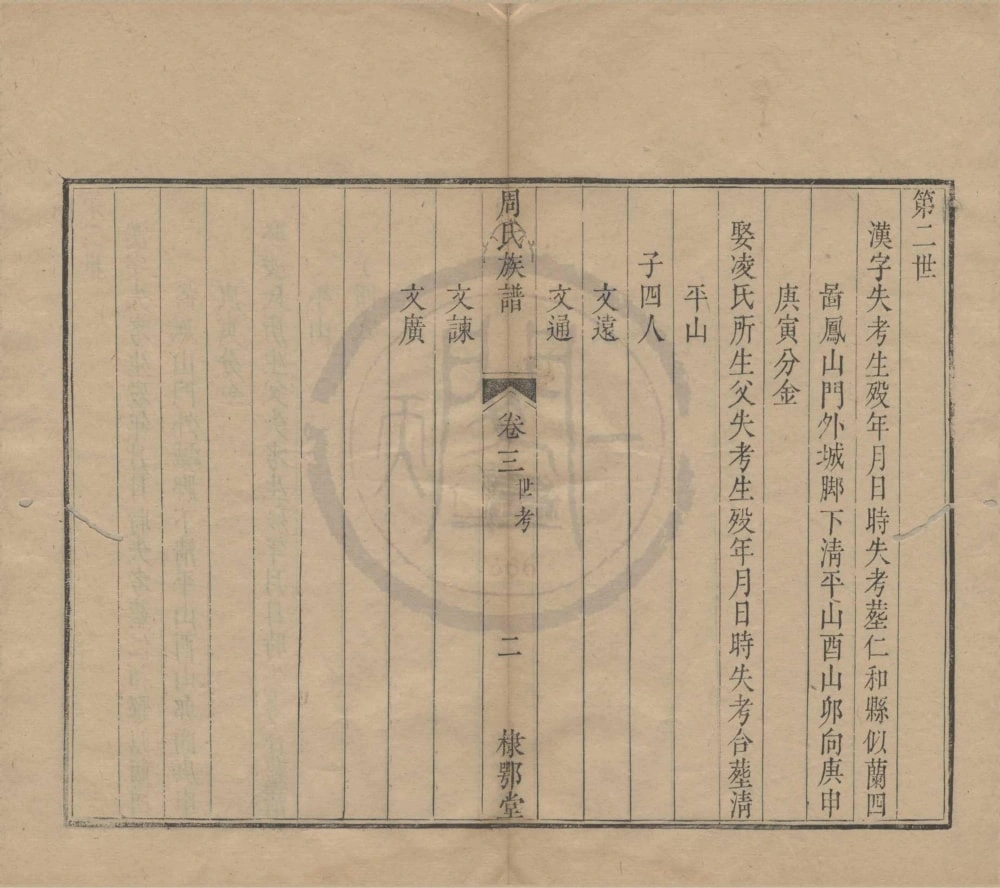 第二世
漢字失考生歿年月日時失考塟仁和縣似蘭四
啚鳳山門外城脚下清平山酉山卯向庚申
庚寅分金
娶凌氏所生父失考生歿年月日時失考合塟清
平山
子四人
文遠
文通
周氏族譜
卷三 世考
二
棣鄂堂
文諫
文廣